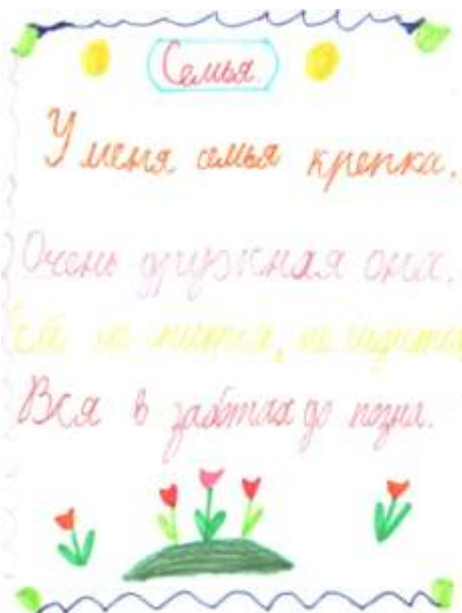 Семья.
У меня семья крепка.
Очень дружная она.
Ей не спится, не сидится
Вся в заботах до позна.